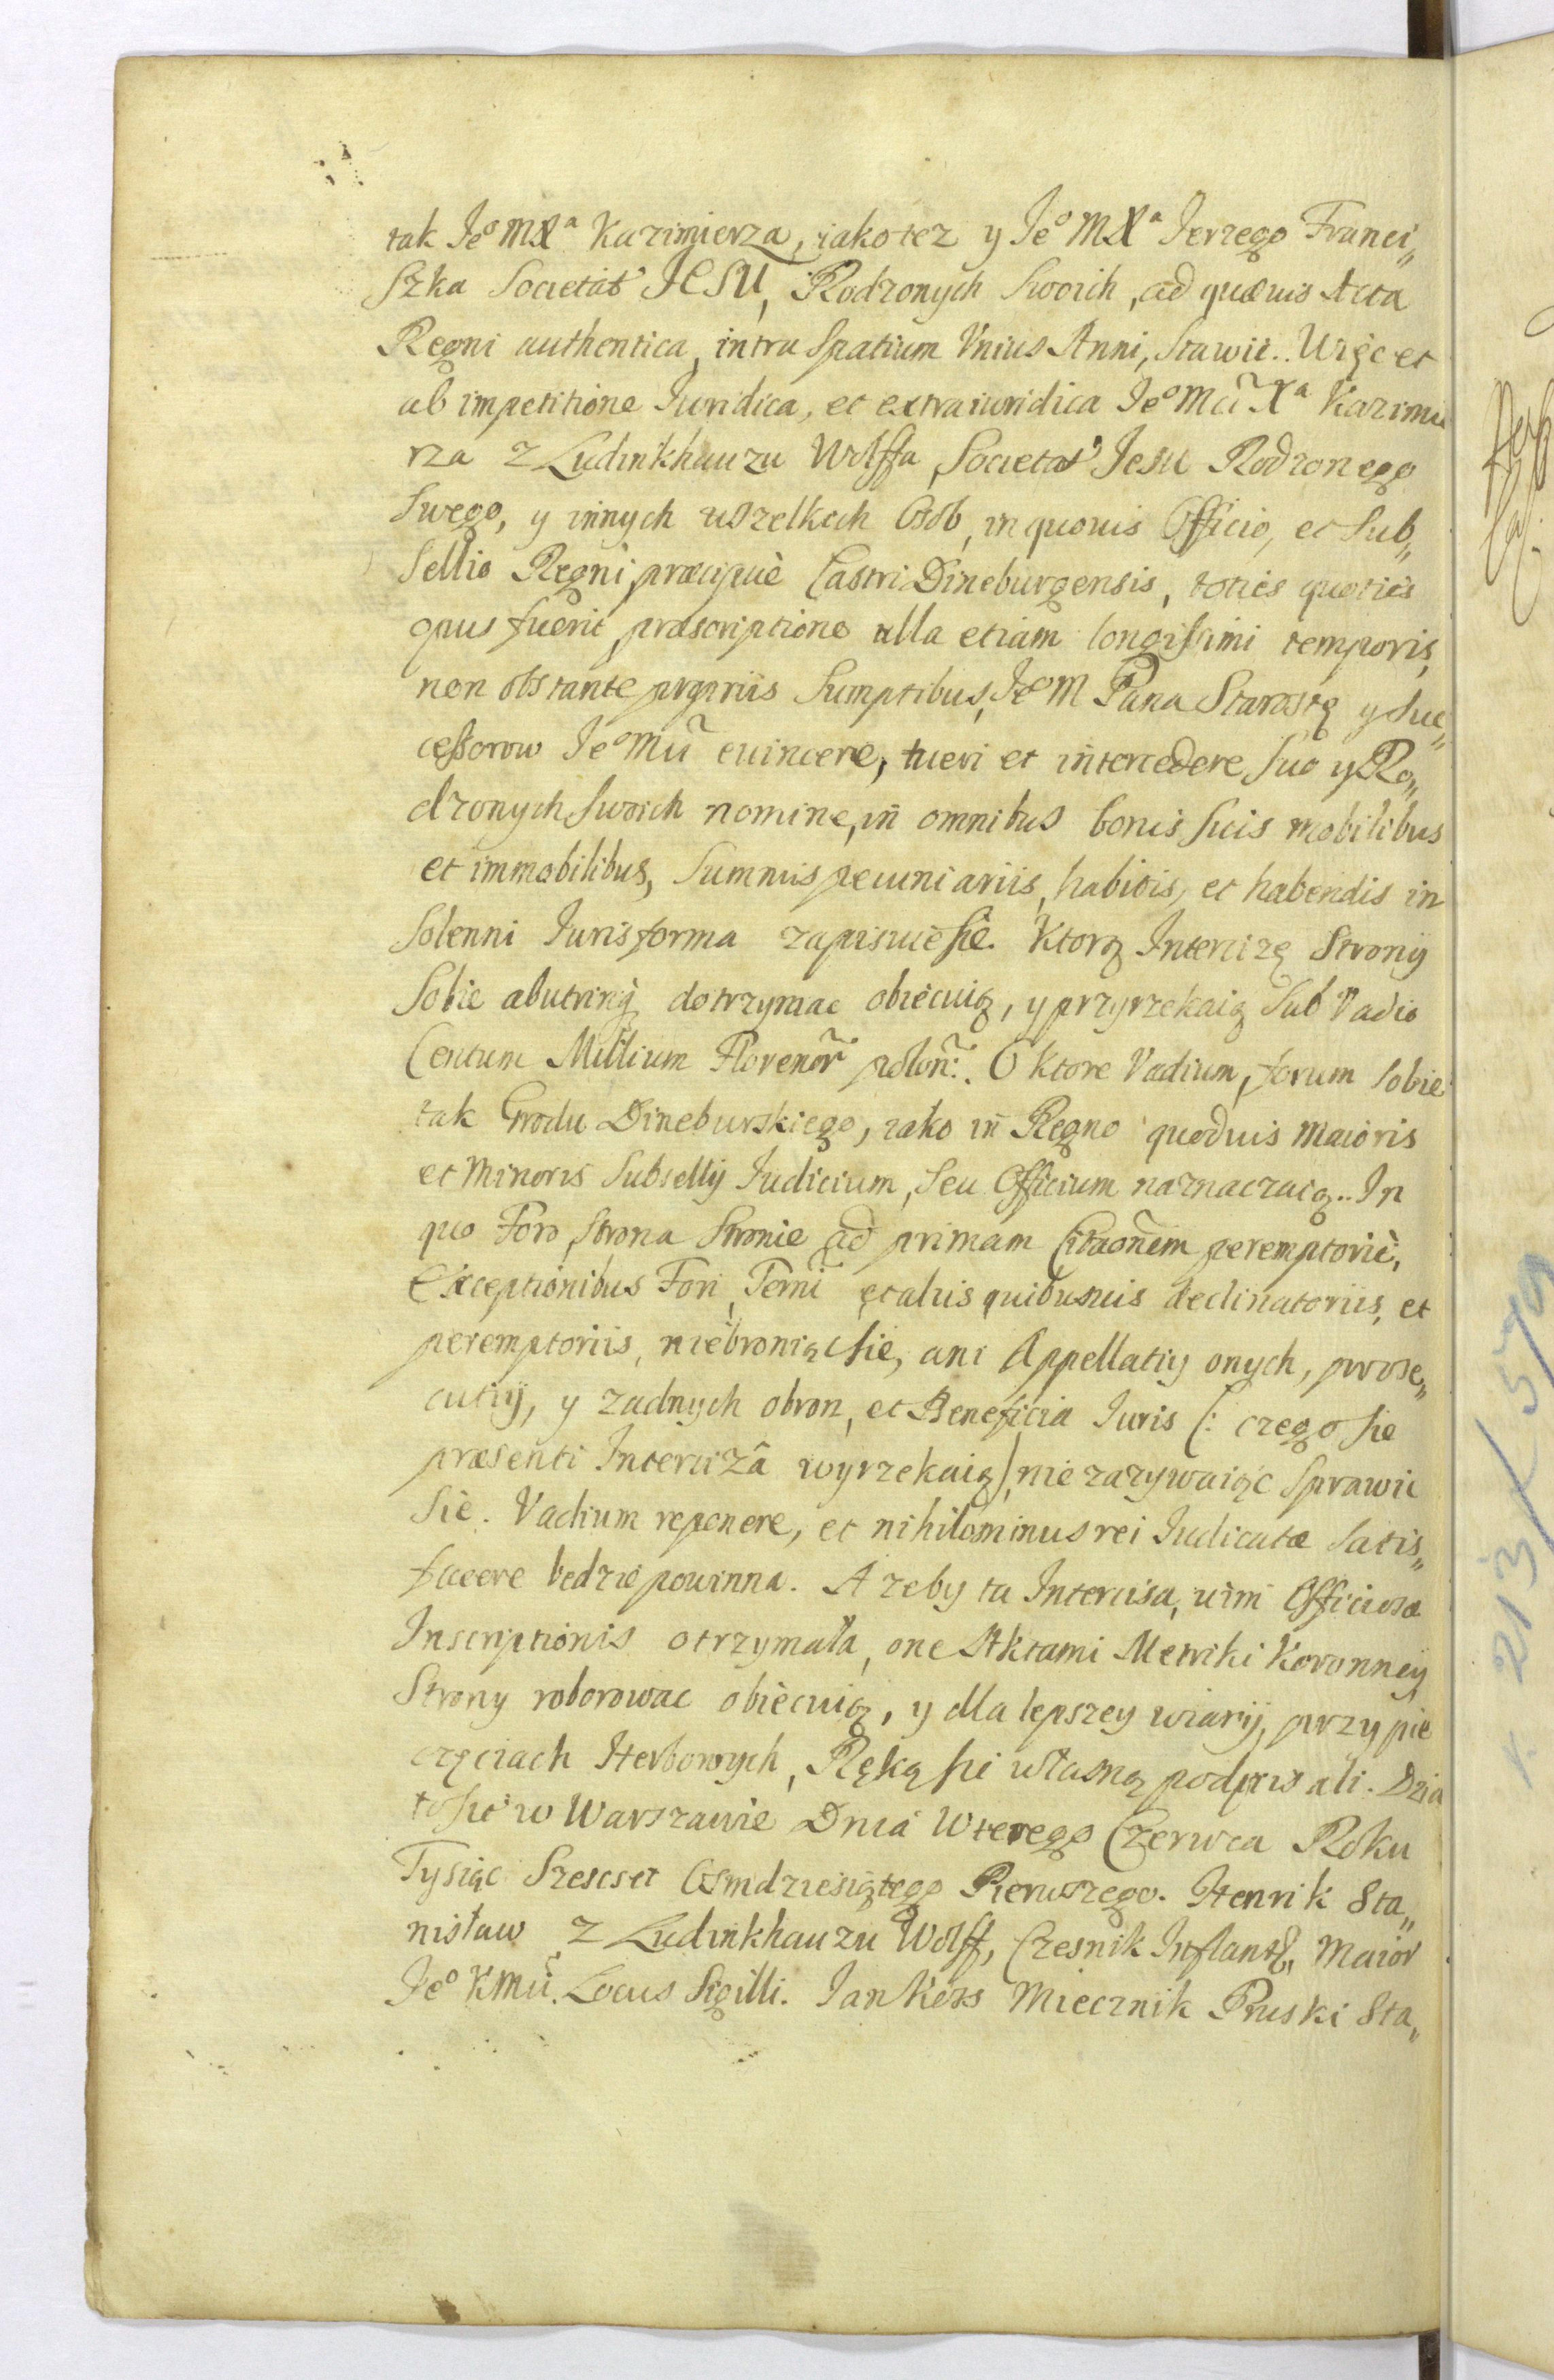 tak Jeº MXª Kazimierza, iakotez y Jeº MXª Jerzego Franci„
szka Societat' JESU, Rodzonych Swoich, ad quævis Acta
Regni authentica, intra Spatium Vnius Anni, Stawic. Więc et
ab impetitione Iuridica, et extraiuridica Jeº Mci Xª Kazimie
rza z Ludinkhauzu Wolffa, Societat' Jesu Rodzonego
Swego, y innych wszelkich Osob, in quovis Officio, et Sub„
sellio Regni præcipuè Castri Dineburgensis, toties quoties
opus fuerit, præscriptione ulla etiam longissimi temporis,
non obstante propriis Sumptibus, Jeº M Pana Starostę y Suc„
cessorow Jeº Mci evincere, tueri et intercedere Suo y Ro„
dzonych Swoich nomine, in omnibus bonis suis mobilibus
et immobilibus, Summis pecuniariis, habitis, et habendis in
Solenni Iuris forma zapisuie sie. Ktorą Intercizę Strony
Sobie abutrinq dotrzymac obiecuią, y przyrzekaią Sub Vadio
Centum Millium Florenor polon:. O ktore Vadium, forum sobie
tak Grodu Dineburskiego, iako in Regno quoduis Maioris
et Minoris Subsellij Iudicium, Seu Officium naznaczaią.. In
quo Foro, Strona Stronie ad primam Citaonem peremptoriè,
Exceptionibus Fori, Termi et aliis quibusuis declinatoriis, et
peremptoriis, niebroniąc sie, ani Appellatiy onych, prose„
cutiÿ, y zadnych obron, et Beneficia Iuris (: czego sie
præsenti Intercizâ wyrzekaią), nie zazywaiąc Sprawic
Sie. Vadium reponere, et nihilominus rei Iudicatæ Satis„
facere bedzie powinna. A zeby ta Intercisa, vim Officiosæ
Inscriptionis otrzymała, one Aktami Metriki Koronney
Strony roborowac obiecuią, y dla lepszey wiary, przy pie
częciach Herbowych, Ręką się własną podpisali. Dzia
ło się w Warszawie Dnia Wtorego Czerwca Roku
Tysiąc Szescset Osmdziesiątego Pierwszego. Henrik Sta„
nisław z Ludinkhauzu Wolff, Czesnik Inflantß, Maior
Jeº KMci. Locus Sigilli. Jan Kos Miecznik Pruski Sta„
k. 213 / 579